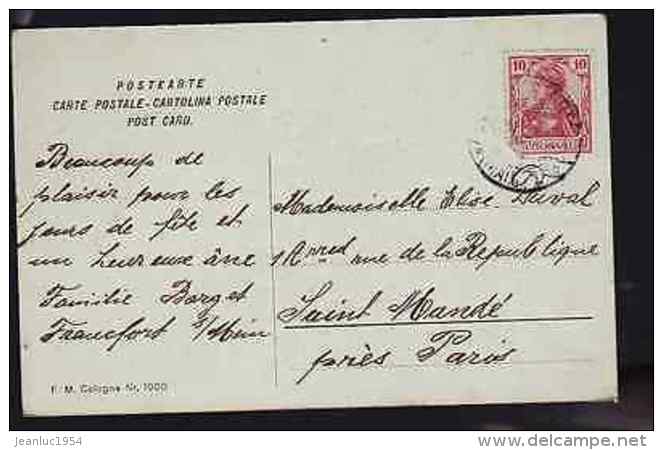 POSTKARTE
CARTE POSTALE - CARTOLINA POSTALE
POST CARD.
10 10
Beaucoup de
plaisir pour les
jours de fête et
un heureux âne
Familie Barget
Francfort s/Mein
Mademoiselle Elise Duval
rue de la Republique
Saint Mandé
près Paris
F. M. Cologne Nr. 1900
jeanluc1954
delcampe.net